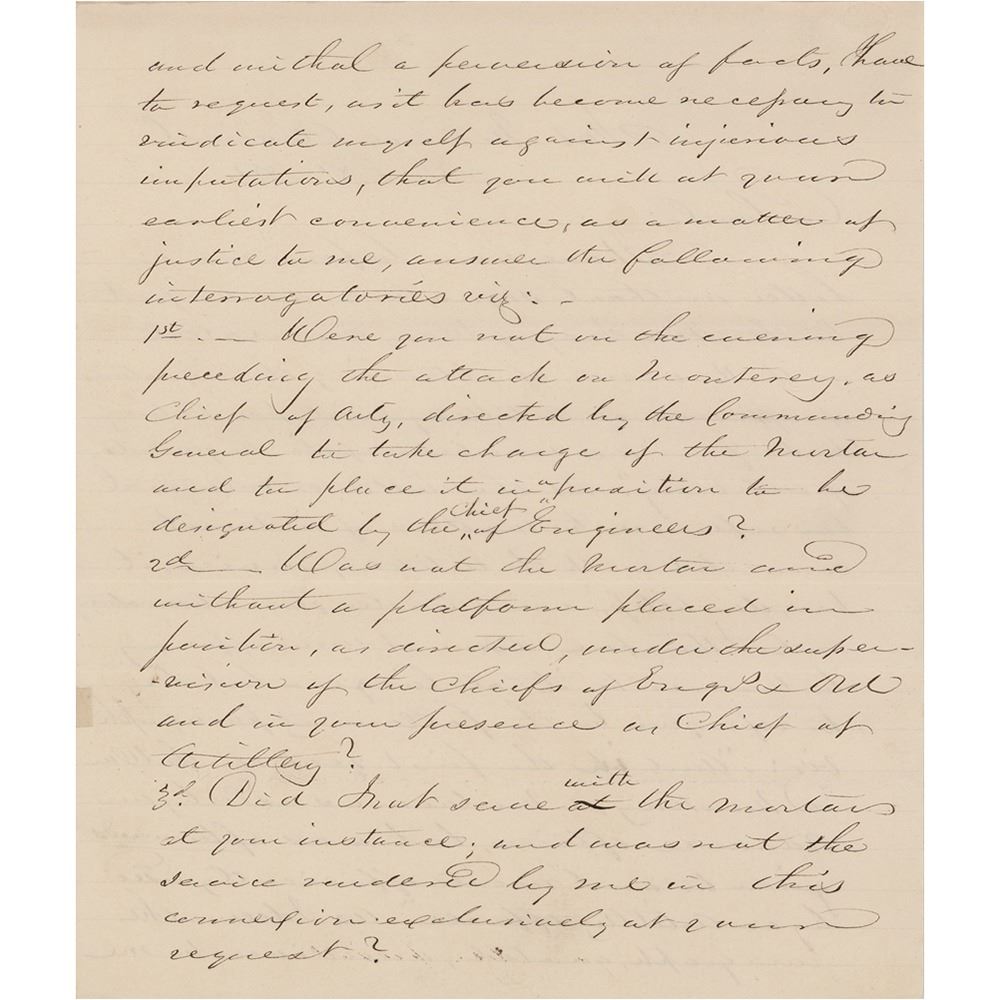 and withal a perversion of facts, I have
to request, as it has become necessary to
vindicate myself against injurious
imputations, that you will at your
earliest convenience, as a matter of
justice to me, answer the following
interrogatories viz: -
1st. — Were you not on the evening
preceding the attack on Monterey, as
Chief of Arty, directed by the Commanding
General to take charge of the Mortar
and to place it in "a" position to be
designated by the "Chief" of Engineers?
2d — Was not the Mortar and
without a platform placed in
position, as directed, under the super-
-vision of the Chiefs of Engrs & Ord
and in your presence as Chief of
Artillery?
3d. Did I not serve at with the mortar
at your instance, and was not the
service rendered by me in this
connexion exclusively at your
request?